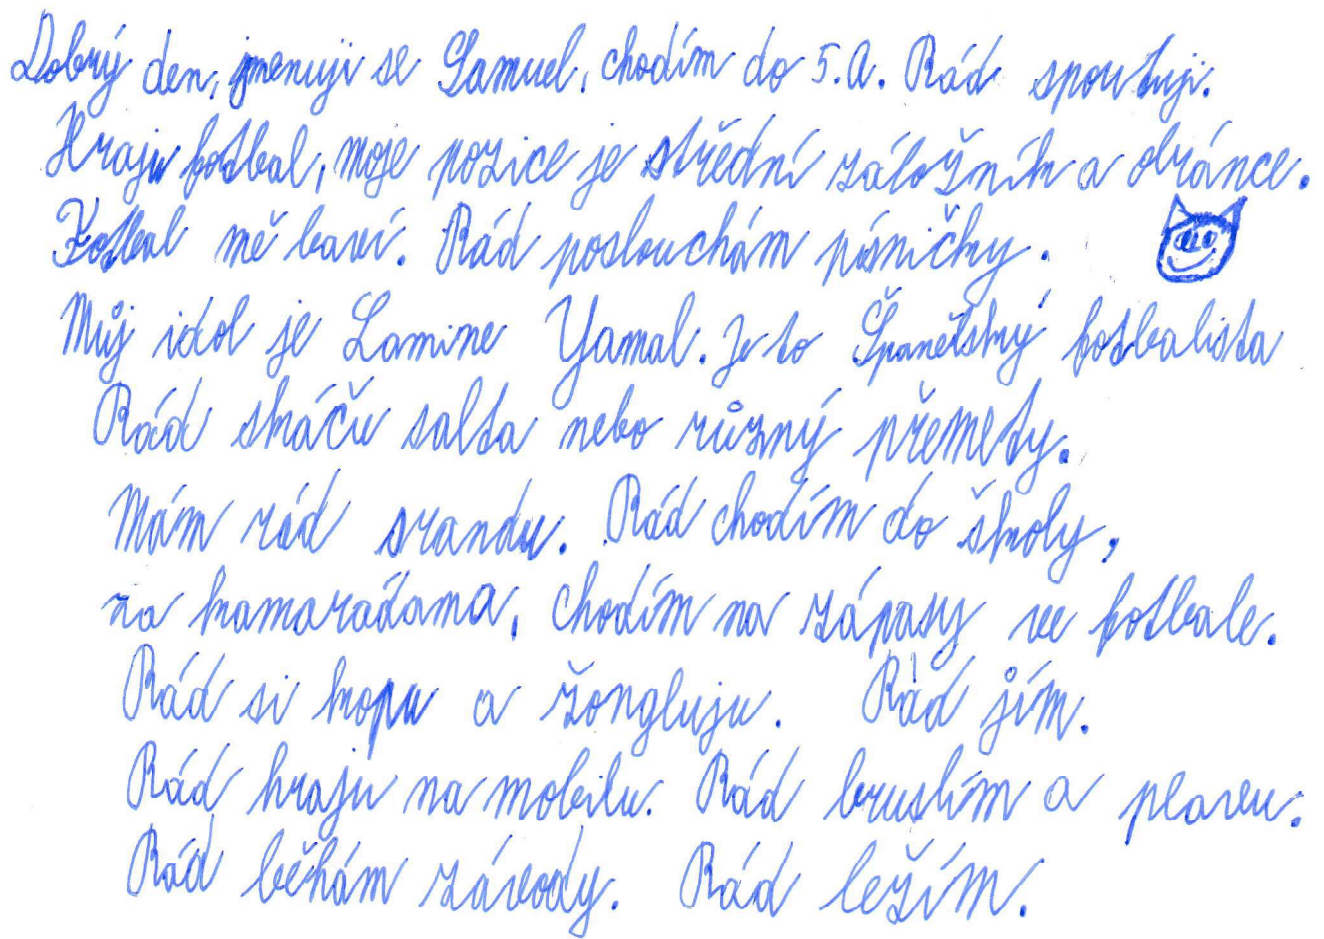 Dobrý den, jmenuji se Samuel, chodím do 5.A. Rád sportuji.
Hraju fotbal, moje pozice je střední záložník a obránce.
Fotbal mě baví. Rád poslouchám písničky.
Můj idol je Lamine Yamal. Je to Španělský fotbalista
Rád skáču salta nebo různý přemety.
Mám rád srandu. Rád chodím do školy,
za kamarádama, chodím na zápasy ve fotbale.
Rád si kopu a žongluju. Rád jím.
Rád hraju na mobilu. Rád bruslím a plavu.
Rád běhám závody. Rád ležím.